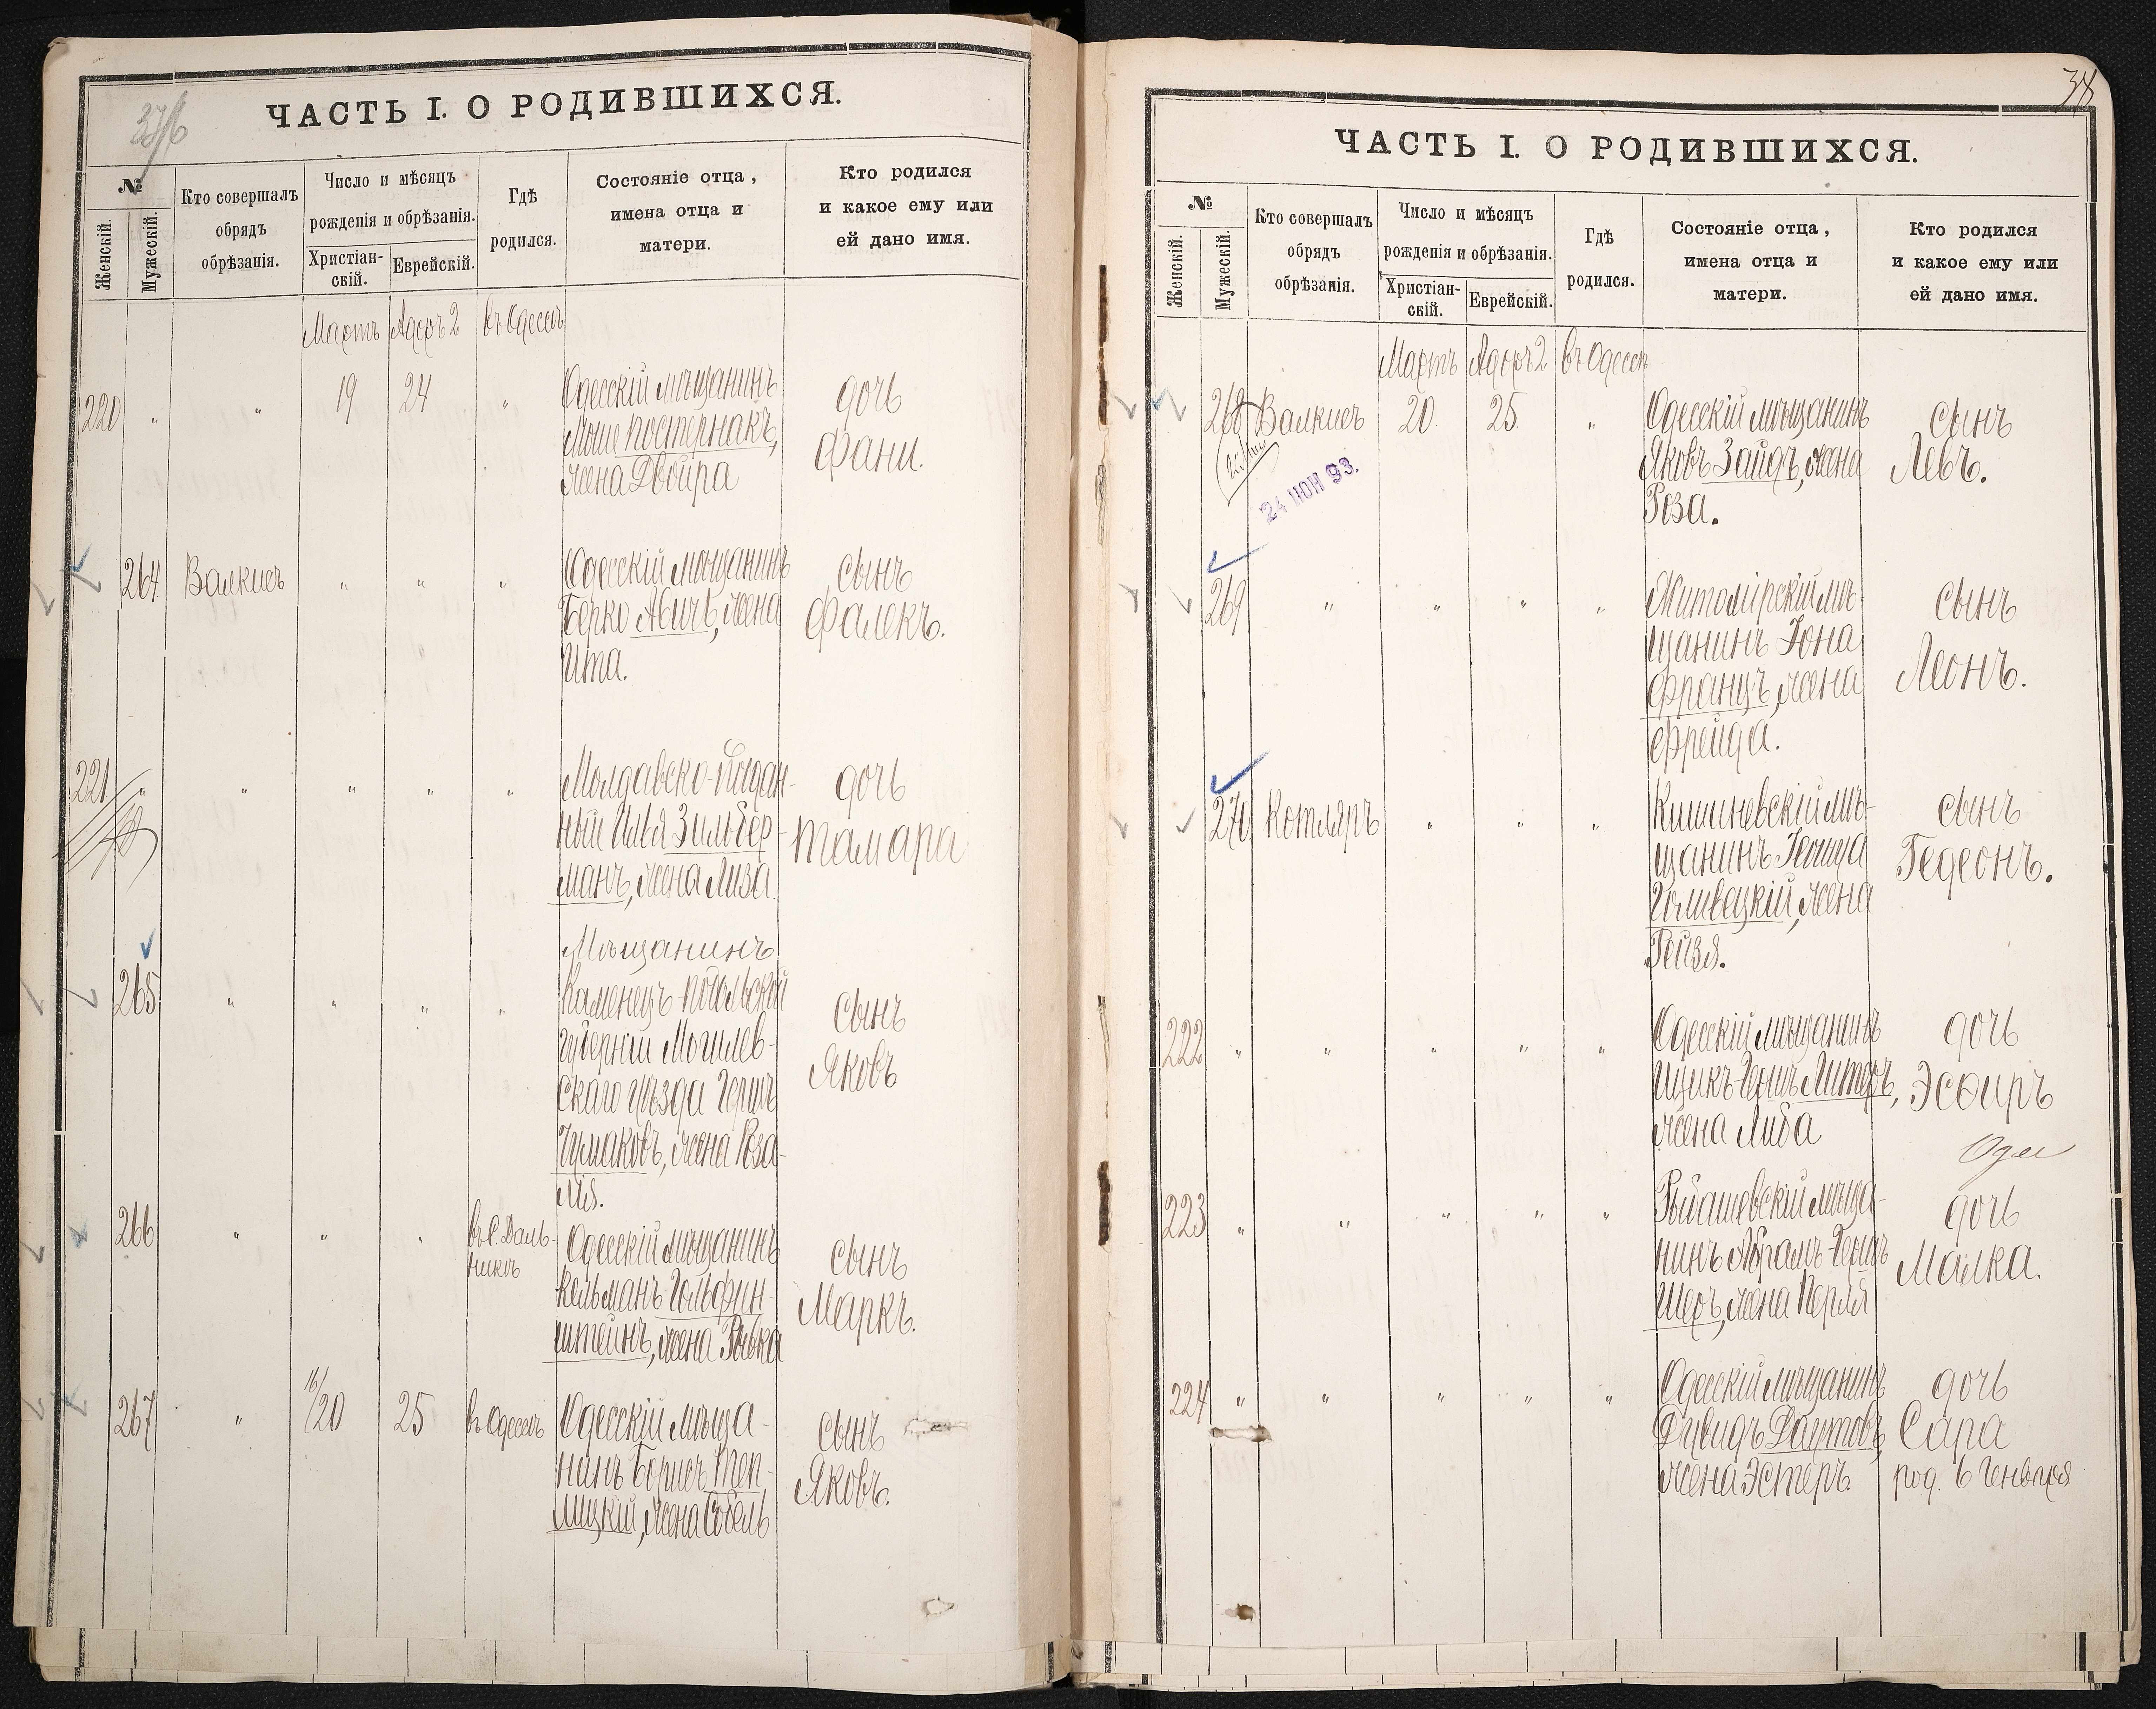 ЧАСТЬ I. О РОДИВШИХСЯ.
№
Женскій.
Мужескій.
Кто совершалъ
обрядъ
обрѣзанія.
Число и мѣсяцъ
рожденія и обрѣзанія.
Христіан-
скій.
Еврейскій.
Гдѣ
родился.
Состояніе отца,
имена отца и
матери.
Кто родился
и какое ему или
ей дано имя.
Мартъ Адаръ 2 въ Одессѣ
220 " " 19 24 "
Одесскій мѣщанинъ
Мошe Постернакъ,
жена Двойра
дочь
Фани.
264 Валкисъ " " "
Одесскій мѣщанинъ
Берко Авичъ, жена
Ита.
сынъ
Фалекъ.
221 " " " " "
Молдавско-подан-
ный Илья Зильбер-
манъ, жена Лиза.
дочь
Тамара
265 " " " "
Мѣщанинъ
Каменецъ-Подольской
губерніи Могилев-
скаго уѣзда Гершъ
Чумаковъ, жена Роза-
лія.
сынъ
Яковъ
266 " " " въ с. Даль-
никѣ
Одесскій мѣщанинъ
Кельманъ Гольдфин-
штейнъ, жена Рывка
сынъ
Маркъ.
267 " 16/20 25 въ Одессѣ
Одесскій мѣща-
нинъ Борисъ Теп-
лицкій, жена Собель
сынъ
Яковъ.
38
ЧАСТЬ I. О РОДИВШИХСЯ.
№
Женскій.
Мужескій.
Кто совершалъ
обрядъ
обрѣзанія.
Число и мѣсяцъ
рожденія и обрѣзанія.
Христіан-
скій.
Еврейскій.
Гдѣ
родился.
Состояніе отца,
имена отца и
матери.
Кто родился
и какое ему или
ей дано имя.
Мартъ Адаръ 2 въ Одессѣ
268 Валкисъ 20. 25. "
24 ІЮН 93.
Одесскій мѣщанинъ
Яковъ Зайдъ, жена
Роза.
сынъ
Левъ.
269 " " " "
Житомірскій мѣ-
щанинъ Іона
Францъ, жена
Фрейда.
сынъ
Леонъ.
270 Котляръ " " "
Кишиневскій мѣ-
щанинъ
Голивецкій, жена
Рейзя.
сынъ
Гедеонъ.
222 " " " " "
Одесскій мѣщанинъ
Ицикъ Гершъ Литеръ,
жена Либа
дочь
Эсѳирь
223 " " " " "
мѣща-
нинъ Абрамъ Гершъ
Шеръ, жена Перля
дочь
Малка.
224 " " " " "
Одесскій мѣщанинъ
Дувидъ Даутовъ,
жена Эстеръ.
дочь
Сара
род. 6 Генваря